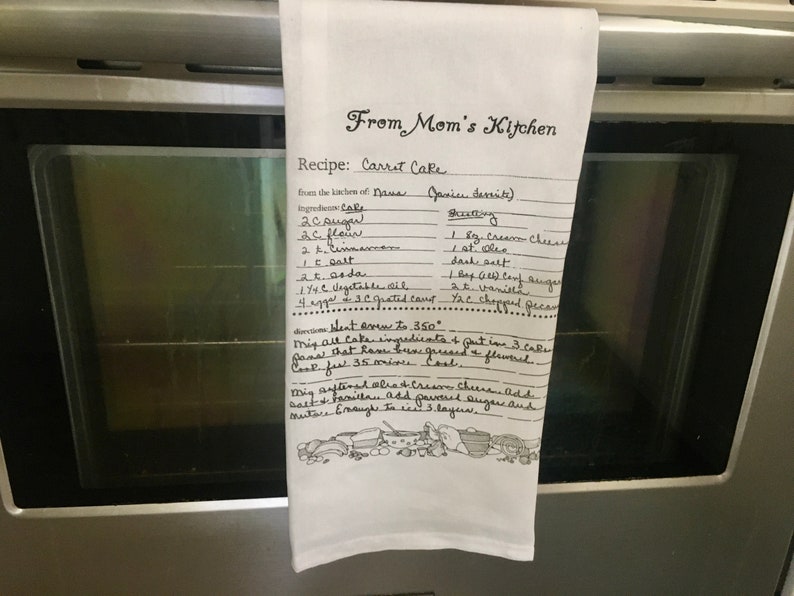 From Mom's Kitchen
Recipe: Carrot Cake
from the kitchen of: Nana (Janice favorite)
ingredients: Cake
2 C sugar
2 C flour
2 t. Cinnamon
1 t salt
2 t. soda
1 1/4 C Vegetable Oil
4 eggs & 3 C grated carrot
Frosting
1 8oz. Cream Cheese
1 st. Oleo
dash salt
1 Box (1lb) Conf. sugar
2 t. Vanilla
1/2 C chopped pecans
directions: Heat oven to 350°
Mix all cake ingredients & put in 3 cake
pans that have been greased & floured.
Cook for 35 min. Cool.
Mix softened oleo & Cream Cheese. Add
salt & vanilla. Add powered sugar and
nuts. Enough to ice 3 layers.